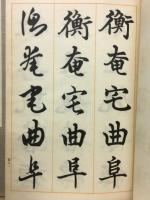 衡奄宅曲阜
衡奄宅曲阜
衡奄宅曲阜